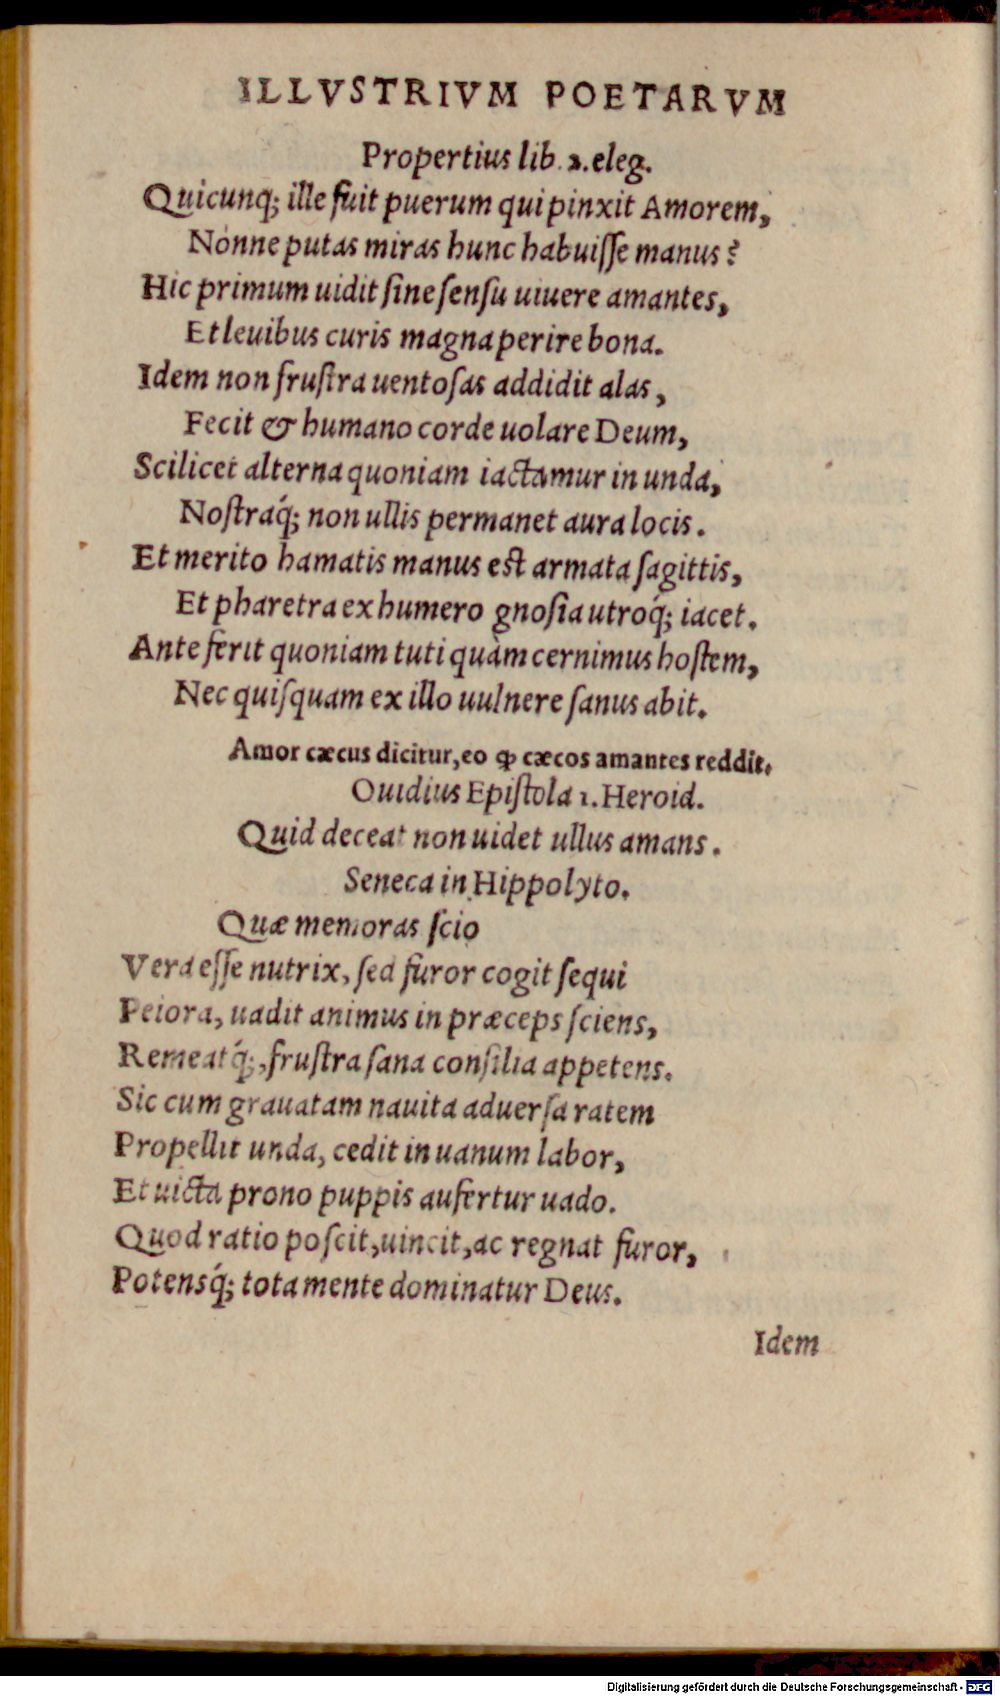 ILLVSTRIVM POETARVM
Propertius lib. 2. eleg.
Quicunq; ille fuit puerum qui pinxit Amorem,
Nónne putas miras hunc habuiſſe manus?
Hic primum uidit ſine ſenſu uiuere amantes,
Et leuibus curis magna perire bona.
Idem non fruſtra uentoſas addidit alas,
Fecit & humano corde uolare Deum,
Scilicet alterna quoniam iactamur in unda,
Noſtraq́; non ullis permanet aura locis.
Et merito hamatis manus est armata ſagittis,
Et pharetra ex humero gnoſia utroq́; iacet.
Ante ferit quoniam tuti quàm cernimus hoſtem,
Nec quiſquam ex illo uulnere ſanus abit.
Amor cæcus dicitur, eo ꝙ cæcos amantes reddit.
Ouidius Epiſtola 1. Heroid.
Quid deceat non uidet ullus amans.
Seneca in Hippolyto.
Quæ memoras ſcio
Vera eſſe nutrix, ſed furor cogit ſequi
Peiora, uadit animus in præceps ſciens,
Remeatq́;, fruſtra ſana conſilia appetens.
Sic cum grauatam nauita aduerſa ratem
Propellit unda, cedit in uanum labor,
Et uicta prono puppis aufertur uado.
Quod ratio poſcit, uincit, ac regnat furor,
Potensq́; tota mente dominatur Deus.
Idem
Digitalisierung gefördert durch die Deutsche Forschungsgemeinschaft - DFG